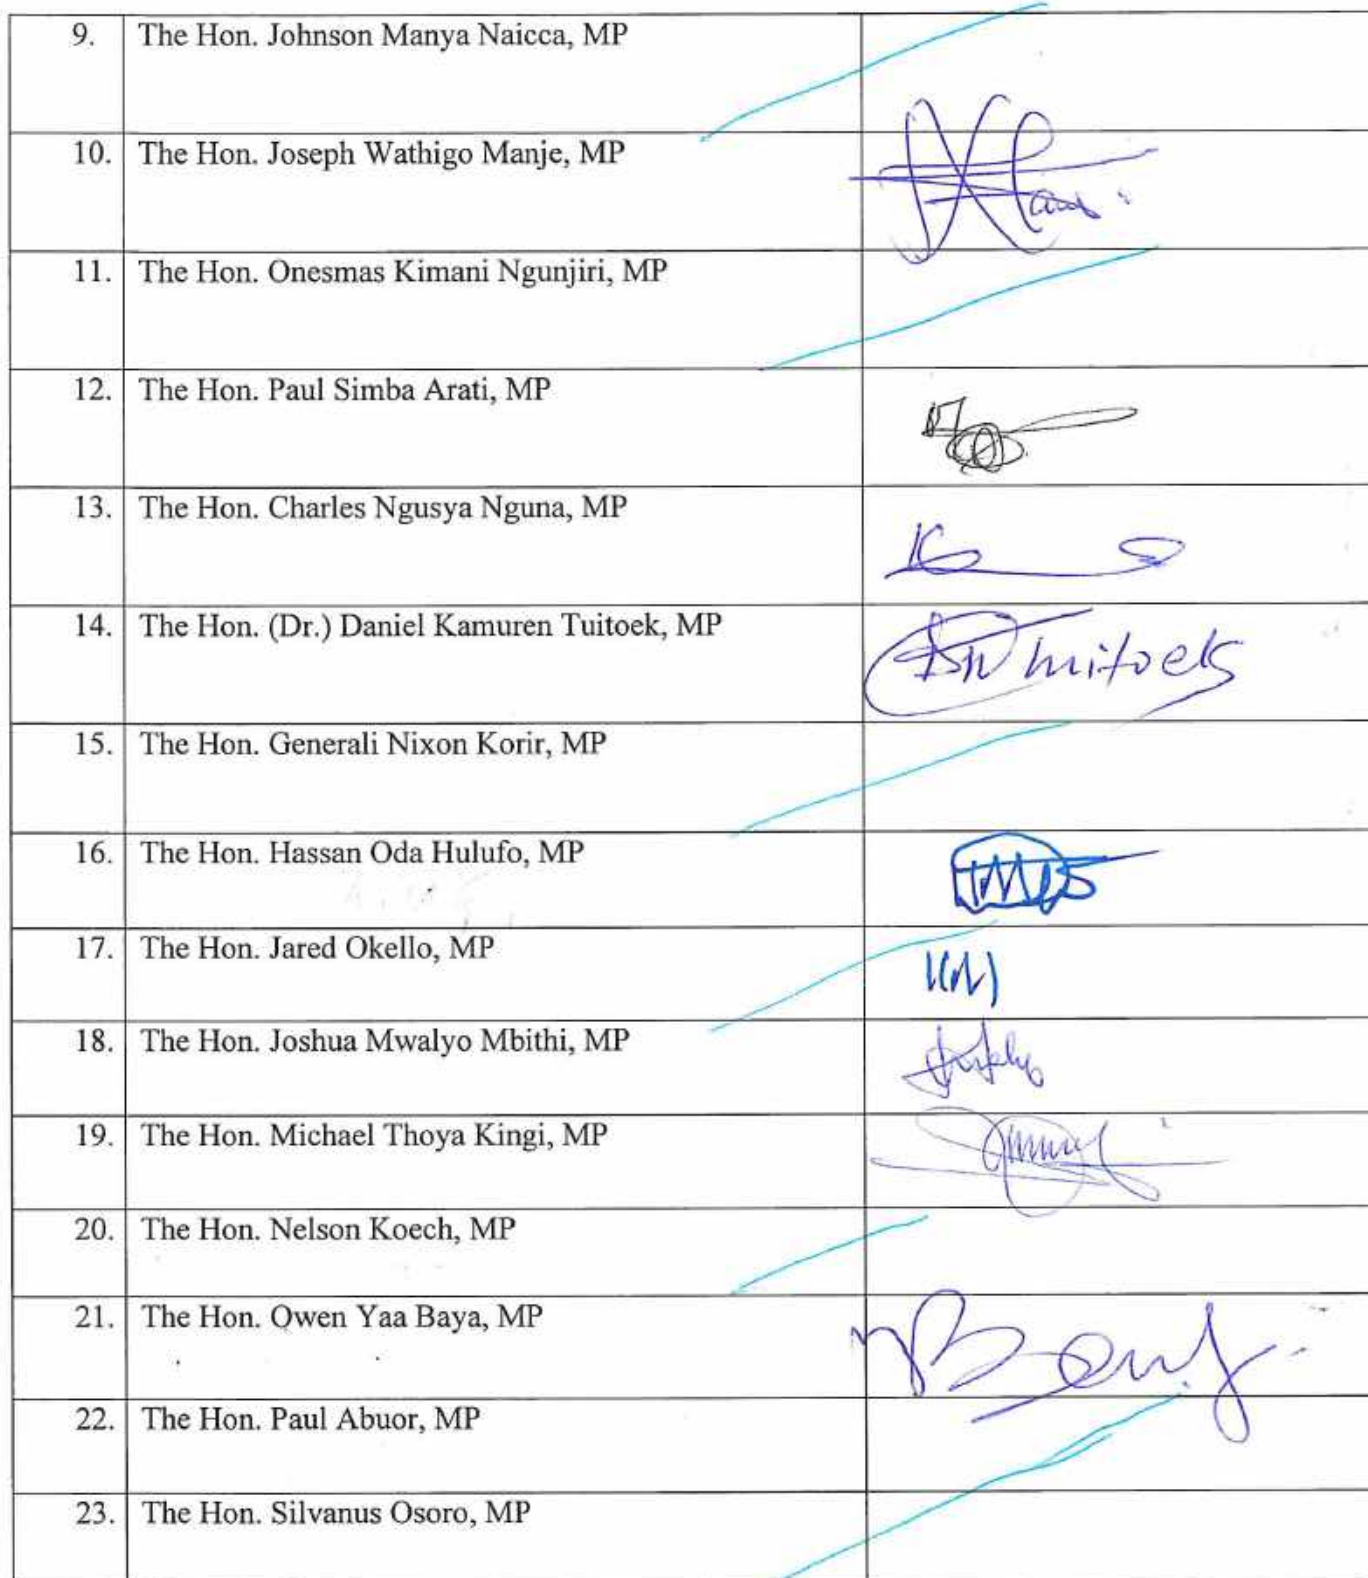 9. The Hon. Johnson Manya Naicca, MP
10. The Hon. Joseph Wathigo Manje, MP
11. The Hon. Onesmas Kimani Ngunjiri, MP
12. The Hon. Paul Simba Arati, MP
13. The Hon. Charles Ngusya Nguna, MP
14. The Hon. (Dr.) Daniel Kamuren Tuitoek, MP
15. The Hon. Generali Nixon Korir, MP
16. The Hon. Hassan Oda Hulufo, MP
17. The Hon. Jared Okello, MP
18. The Hon. Joshua Mwalyo Mbithi, MP
19. The Hon. Michael Thoya Kingi, MP
20. The Hon. Nelson Koech, MP
21. The Hon. Owen Yaa Baya, MP
22. The Hon. Paul Abuor, MP
23. The Hon. Silvanus Osoro, MP